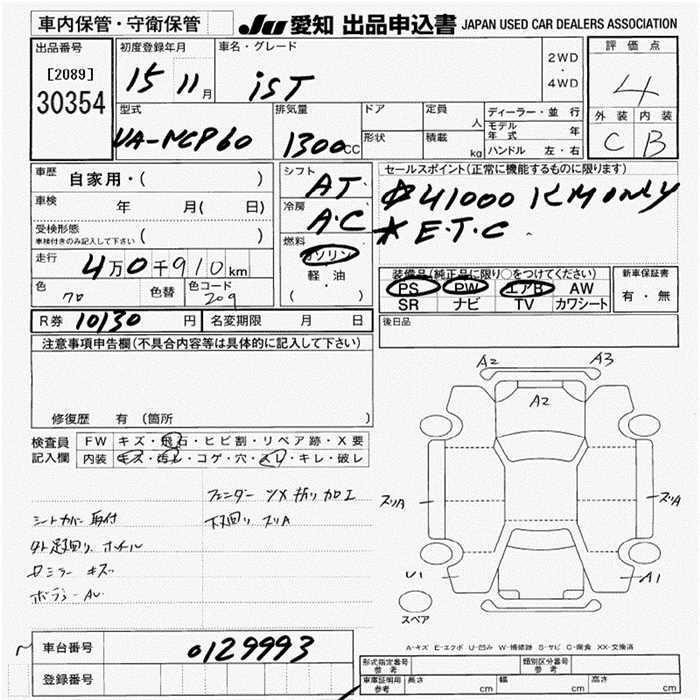 車内保管・守衛保管
JU 愛知 出品申込書 JAPAN USED CAR DEALERS ASSOCIATION
出品番号
[2089]
30354
初度登録年月
15 11月
車名・グレード
iST
2WD
・
4WD
評価点
4
外装 内装
C B
型式
UA-NCP60
排気量
1300cc
ドア
形状
定員
人
積載
kg
ディーラー・並行
モデル年式 年
ハンドル 左・右
車歴 自家用・( )
車検 年 月( 日)
受検形態
車検付きのみ記入して下さい ( )
走行 4万0千910km
色 クロ 色替 色コード 209
シフト
AT
冷房
A・C
燃料
ガソリン
軽油
( ・ )
セールスポイント(正常に機能するものに限ります)
41000KM ONLY
★ E.T.C
装備品(純正品に限り○をつけてください)
PS PW エアB AW
SR ナビ TV カワシート
新車保証書
有・無
R券 10130円 名変期限 月 日
後日品
注意事項申告欄(不具合内容等は具体的に記入して下さい)
修復歴 有 (箇所 )
検査員記入欄
FW キズ・飛石・ヒビ割・リペア跡・X要
内装 キズ・汚レ・コゲ・穴・スレ・キレ・破レ
シートカバー取付
外足回り ホイル
キズ
フェンダー ツメ折り加工
下廻り スリA
A2 A3
A2
スリA スリA
U1 A1
スペア
A-キズ E-エクボ U-凹み W-補修跡 S-サビ C-腐食 XX-交換済
車台番号 0129993
登録番号
形式指定番号 参考
類別区分番号 参考
車庫証明用 参考 長さ cm 幅 cm 高さ cm